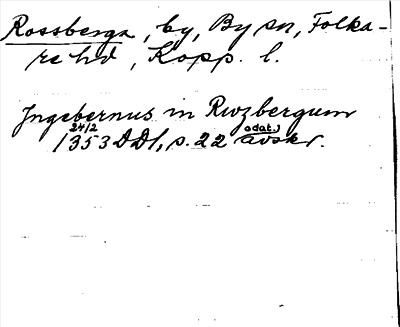 Rossberga, by, By sn, Folka-
re hd, Kopp. l.
Ingebernus in Rwzbergum
24/2 odat.)
1353 DD 1, s. 22 avskr.